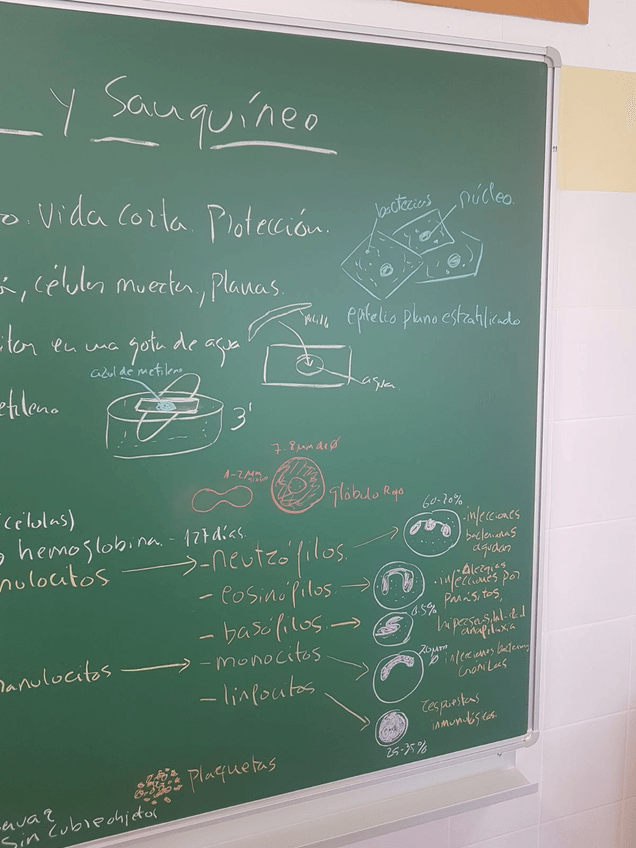 y Sanguíneo
o. Vida corta. Protección.
bacterias
núcleo
, células muertas, planas.
epitelio plano estratificado
en una gota de agua
agua
azul de metileno
etileno
3'
7-8 µm de ø
1-2 µm
glóbulo rojo
células)
hemoglobina. - 127 días.
60-70%
nulocitos
- neutrófilos
- infecciones
bacterianas
agudas
- eosinófilos
- Alergias
- infecciones por
parásitos,
- basófilos
0.5%
hipersensibilidad
anafilaxia
anulocitos
- monocitos
20 µm ø
infecciones bacterianas
crónicas
- linfocitos
respuestas
inmunológicas.
25-35%
plaquetas
sin cubreobjetos